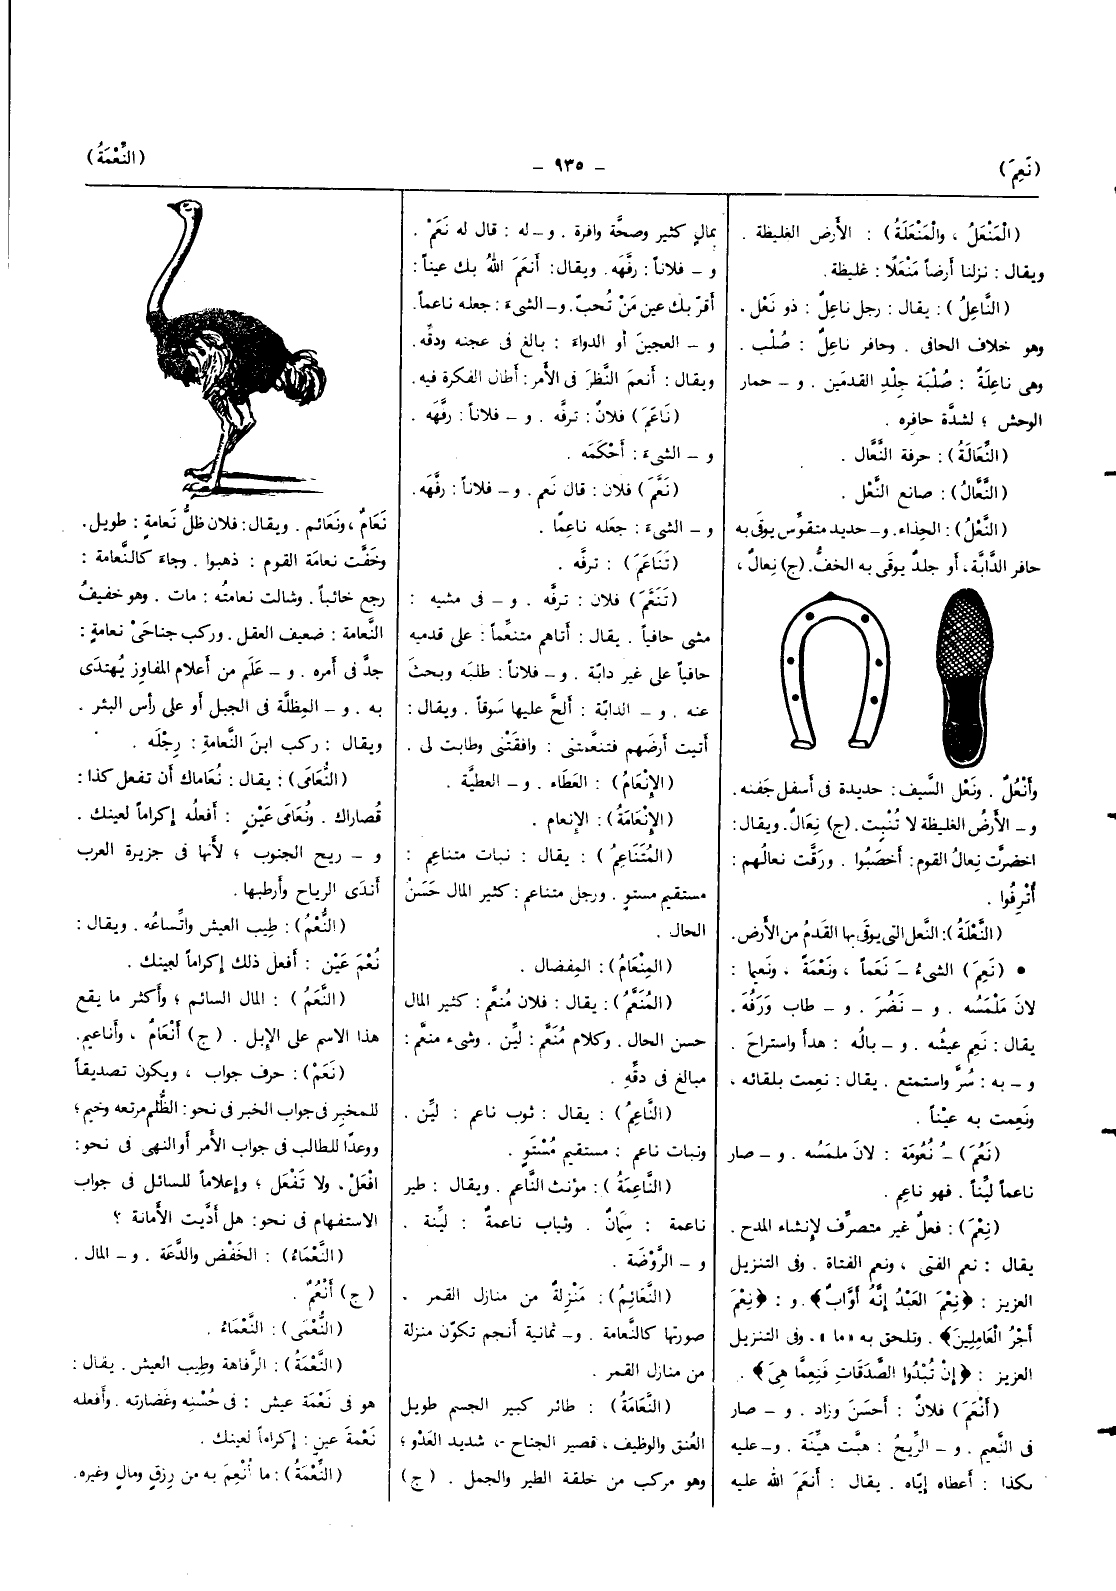 (نَعِمَ)
- ٩٣٥ -
(النِّعْمَةُ)
(الْمَنْعَلُ ، والْمَنْعَلَةُ) : الأَرض الغليظة .
ويقال : نزلنا أَرضاً مَنْعَلًا : غليظة.
(النَّاعِلُ) : يقال : رجل ناعِلٌ : ذو نَعْل .
وهو خلاف الحافى . وحافر ناعِلٌ : صُلْب .
وهى ناعِلَةٌ : صُلْبَة جِلْدِ القدمَين . و – حمار
الوحش ؛ لشدَّة حافره .
(النِّعَالَةُ) : حرفة النَّعَّال .
(النَّعَّالُ) : صانع النَّعْل .
(النَّعْلُ) : الحِذاء. و– حديد متقوِّس يوقَى به
حافر الدَّابَّة ، أَو جلدٌ يوقَى به الخفُّ. (ج) نِعالٌ ،
وأَنْعُلٌ . ونَعْل السَّيف : حديدة فى أَسفل جَفنه .
و – الأَرضُ الغليظة لا تُنْبِت . (ج) نِعَالٌ . ويقال :
اخضرَّت نِعالُ القوم : أَخصَبُوا . ورَقَّت نعالُهم :
أُتْرِفُوا .
(النَّعْلَةُ) : النَّعل التى يوقَى بها القَدمُ من الأَرض.
• (نَعِمَ) الشىءُ –َ نَعَماً ، ونَعْمَةً ، ونَعيما :
لانَ مَلْمَسُه . و – نَضُرَ . و – طاب وَرَفَهَ .
يقال : نَعِم عيشُه . و – بالُه : هدأَ واستراحَ .
و – به : سُرَّ واستمتع . يقال : نعِمت بلقائه ،
ونَعِمت به عيْناً .
(نَعُمَ) –ُ نُعُومَة : لانَ ملمَسُه . و – صار
ناعماً ليِّناً . فهو ناعِم .
(نِعْمَ) : فعلٌ غير متصرِّف لإِنشاء المدح .
يقال : نعم الفتى ، ونعم الفتاة . وفى التنزيل
العزيز : ﴿نِعْمَ العَبْدُ إِنَّهُ أَوَّابٌ﴾. و : ﴿نِعْمَ
أَجْرُ الْعَامِلِينَ﴾. وتلحق به «ما» . وفى التنزيل
العزيز : ﴿إِنْ تُبْدُوا الصَّدَقَاتِ فَنِعِمَّا هِىَ﴾ .
(أَنْعَمَ) فلانٌ : أَحسَنَ وزاد . و – صار
فى النَّعيم . و – الرِّيحُ : هبَّت هيِّنَة . و– عليه
بكذا : أَعطاه إِيَّاه . يقال : أَنعَمَ الله عليه
بمالٍ كثير وصحَّة وافرة . و– له : قال له نَعَمْ .
و – فلاناً : رفَّهَه. ويقال : أَنعَمَ اللهُ بك عيناً :
أَقرّ بك عين مَنْ تُحبّ. و– الشىءَ : جعله ناعماً.
و – العجينَ أَو الدواءَ : بالغ فى عجنه ودقِّه .
ويقال : أَنعمَ النَّظرَ فى الأَمر : أَطال الفكرة فيه .
(نَاعَمَ) فلانٌ : ترفَّه . و – فلاناً : رفَّهَه .
و – الشىءَ : أَحْكَمَه .
(نَعَّمَ) فلان : قال نَعم . و – فلاناً : رفَّهَه.
و – الشىءَ : جعَله ناعِمًا .
(تَنَاعَمَ) : ترفَّه .
(تَنَعَّمَ) فلان : ترفَّه . و – فى مشيه :
مشى حافياً . يقال : أَتاهم متنعِّماً : على قدميه
حافياً على غير دابّة . و– فلاناً : طلبَه وبحثَ
عنه . و – الدابّة : أَلحَّ عليها سَوقاً . ويقال :
أَتيت أَرضَهم فتنعَّمتنى : وافقَتْنى وطابت لى .
(الإِنْعَامُ) : العَطَاء . و – العطيَّة .
(الإِنْعَامَةُ) : الإنعام .
(المُتَنَاعِمُ) : يقال : نبات متناعِم :
مستقيم مستوٍ . ورجل متناعم : كثير المال حَسَنُ
الحال .
(المِنْعَامُ) : المِفضال .
(المُنَعَّمُ) : يقال : فلان مُنعَّم : كثير المال
حسن الحال . وكلام مُنَعَّم : ليِّن . وشىء منعَّم :
مبالغ فى دقِّهِ .
(النَّاعِمُ) : يقال : ثوب ناعم : ليِّن .
ونبات ناعم : مستقيم مُسْتَوٍ .
(النَّاعِمَةُ) : مؤنث النَّاعم . ويقال : طير
ناعمة : سِمَانٌ . وثياب ناعمةٌ : ليِّنة .
و – الرَّوْضَة .
(النَّعَائِمُ) : مَنْزِلةٌ من منازل القمر .
صورتها كالنَّعامة . و– ثمانية أَنجم تكوّن منزلة
من منازل القمر .
(النَّعَامَةُ) : طائر كبير الجسم طويل
العُنق والوظيف ، قصير الجناح ، شديد العَدْو ؛
وهو مركب من خلقة الطير والجمل . (ج)
نَعَامٌ ، ونَعَائم . ويقال : فلان ظلُّ نَعامةٍ : طويل.
وخَفَّت نعامَة القوم : ذهبوا . وجاءَ كالنَّعامة :
رجع خائباً . وشالت نعامتُه : مات . وهو خفيفُ
النَّعامة : ضعيف العقل . وركب جناحَىْ نعامةٍ :
جدَّ فى أَمره . و – عَلَم من أَعلام المفاوِز يُهتدَى
به . و – المِظلَّة فى الجبل أَو على رأْس البئر .
ويقال : ركب ابنَ النَّعامةِ : رِجْلَه .
(النُّعَامَى) : يقال : نُعَاماك أَن تفعل كذا :
قُصاراك . ونُعَامَى عَيْنٍ : أَفعلُه إِكراماً لعينك .
و – ريح الجنوب ؛ لأَنها فى جزيرة العرب
أَندَى الرياح وأَرطبها .
(النُّعْمُ) : طِيب العيش واتِّساعُه . ويقال :
نُعْمَ عَيْن : أَفعل ذلك إِكراماً لعينك .
(النَّعَمُ) : المال السائم ؛ وأَكثر ما يقع
هذا الاسم على الإِبل . (ج) أَنْعَامٌ ، وأَناعيم.
(نَعَمْ) : حرف جواب ، ويكون تصديقاً
للمخبِر فى جواب الخبر فى نحو : الظُّلم مرتعه وخيم ؛
ووعدًا للطالب فى جواب الأَمر أَو النهى فى نحو :
افْعَلْ ، ولا تَفْعَل ؛ وإِعلاماً للسائل فى جواب
الاستفهام فى نحو : هل أَدَّيت الأَمانة ؟
(النَّعْمَاءُ) : الخَفْض والدَّعَة . و – المال .
(ج) أَنْعُمٌ .
(النُّعْمَى) : النَّعْمَاءُ .
(النَّعْمَةُ) : الرَّفاهة وطِيب العيش . يقال :
هو فى نَعْمَة عيش : فى حُسْنِه وغَضَارته . وأَفعله
نَعْمَةَ عينٍ : إِكراماً لعينك .
(النِّعْمَةُ) : ما أُنْعِمَ به من رِزقٍ ومالٍ وغيره.